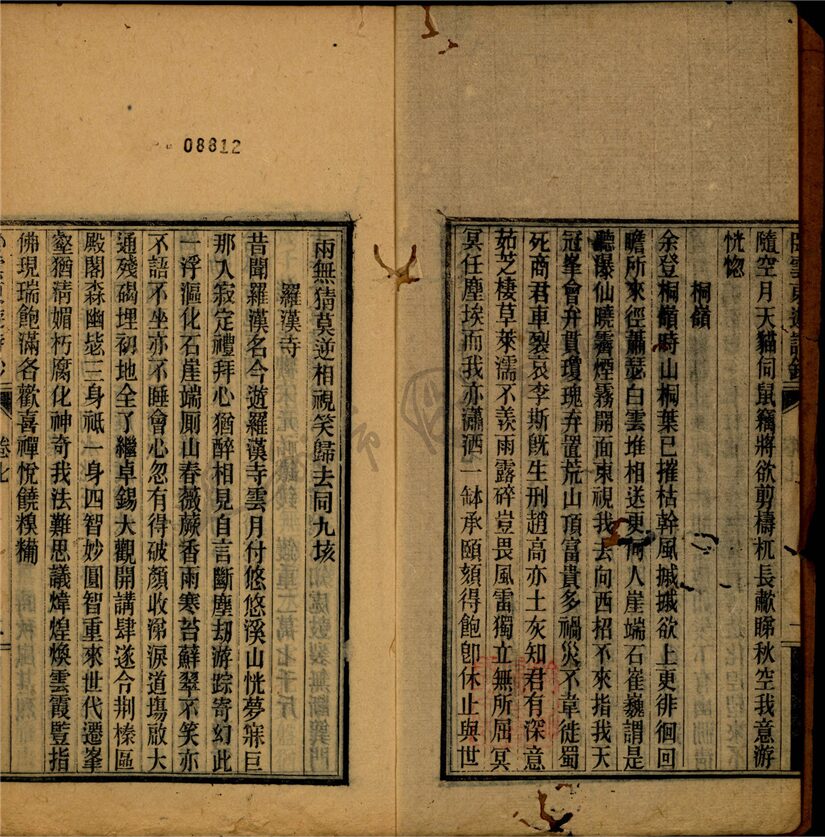 隨空月天貓伺鼠竊將欲剪檮杌長歗睇秋空我意游
恍惚
桐嶺
余登桐嶺時山桐葉已摧枯幹風摵摵欲上更徘徊回
瞻所來徑蕭瑟白雲堆相送更何人崖端石崔巍謂是
聽瀑仙曉霽煙霧開面東視我去向西招不來指我天
冠峯會弁貫瓊瑰弃置荒山頂富貴多禍災不韋徙蜀
死商君車裂哀李斯旣生刑趙高亦土灰知君有深意
茹芝棲草萊濡不羨雨露碎豈畏風雷獨立無所屈冥
冥任塵埃而我亦瀟洒一缽承頤頦得飽卽休止與世
兩無猜莫逆相視笑歸去同九垓
羅漢寺
昔聞羅漢名今遊羅漢寺雲月付悠悠溪山恍夢寐巨
那入寂定禮拜心猶醉相見自言斷塵劫游踪寄幻此
一浮漚化石崖端厠山春薇蕨香雨寒苔蘚翠不笑亦
不語不坐亦不睡會心忽有得破顏收涕淚道塲啟大
通殘碣埋初地全了繼卓錫大觀開講肆遂令荆榛區
殿閣森幽毖三身祇一身四智妙圓智重來世代遷峯
壑猶淸媚朽腐化神奇我法難思議煒煌煥雲霞豎指
佛現瑞飽滿各歡喜禪悅饒糗糒
卷七
08812